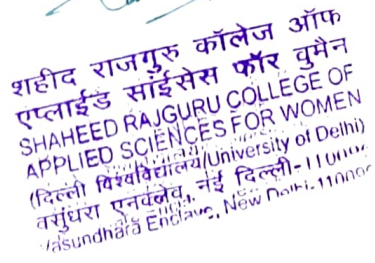 शहीद राजगुरु कॉलेज ऑफ
एप्लाईड साईंसेस फॉर वुमैन
SHAHEED RAJGURU COLLEGE OF
APPLIED SCIENCES FOR WOMEN
(दिल्ली विश्वविद्यालय/University of Delhi)
वसुंधरा एनक्लेव, नई दिल्ली-
Vasundhara Enclave, New Delhi-